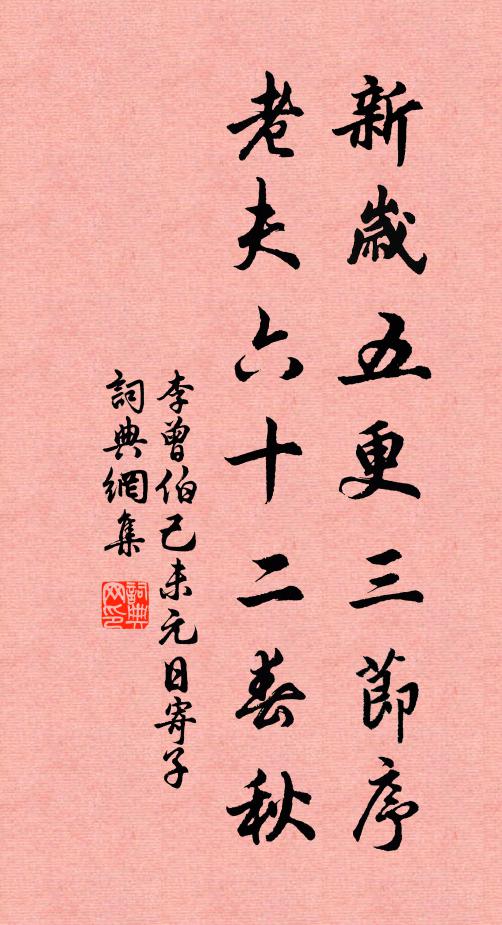 新歲五更三節序
老夫六十二春秋
李曾伯己未元日寄子
詞典網集
詞典網印